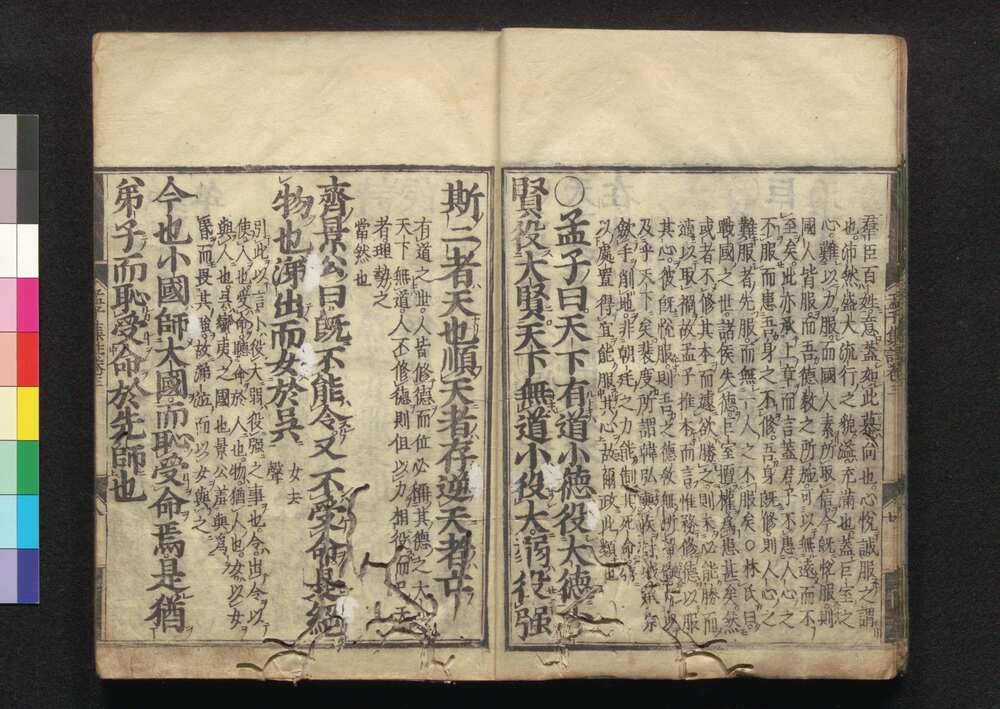 群臣百姓意蓋如此慕向也心悅誠服之謂
也沛然盛大流行之貌溢充滿也蓋巨室之
心難以力服而國人素所取信今既悅服則
國人皆服而吾德教之所施可以無遠而不
至矣此亦承上章而言蓋君子不患人心之
不服而患吾身之不修吾身既修則人心之
難服者先服而無一人之不服矣○林氏曰
戰國之世諸侯失德巨室擅權爲患甚矣然
或者不修其本而遽欲勝之則未必能勝而
適以取禍故孟子推本而言惟務修德以服
其心彼既悅服則吾之德教無所留礙可以
及乎天下矣裴度所謂韓弘輿疾討賊承宗
斂手削地非朝廷之力能制其死命
以處置得宜能服其心故爾政此類也
○孟子曰天下有道小德役大德小
賢役大賢天下無道小役大弱役强
斯二者天也順天者存逆天者亡
有道之世人皆修德而位必稱其德之大
天下無道人不修德則但以力相役而已天
者理勢之
當然也
齊景公曰既不能令又不受命是絕
物也涕出而女於吳
女去
聲
引此以言小役大弱役强之事也令出令以
使人也受命聽命於人也物猶人也女以女
與人也吳蠻夷之國也景公羞與爲
而畏其强故涕泣而以女與之
今也小國師大國而恥受命焉是猶
弟子而恥受命於先師也